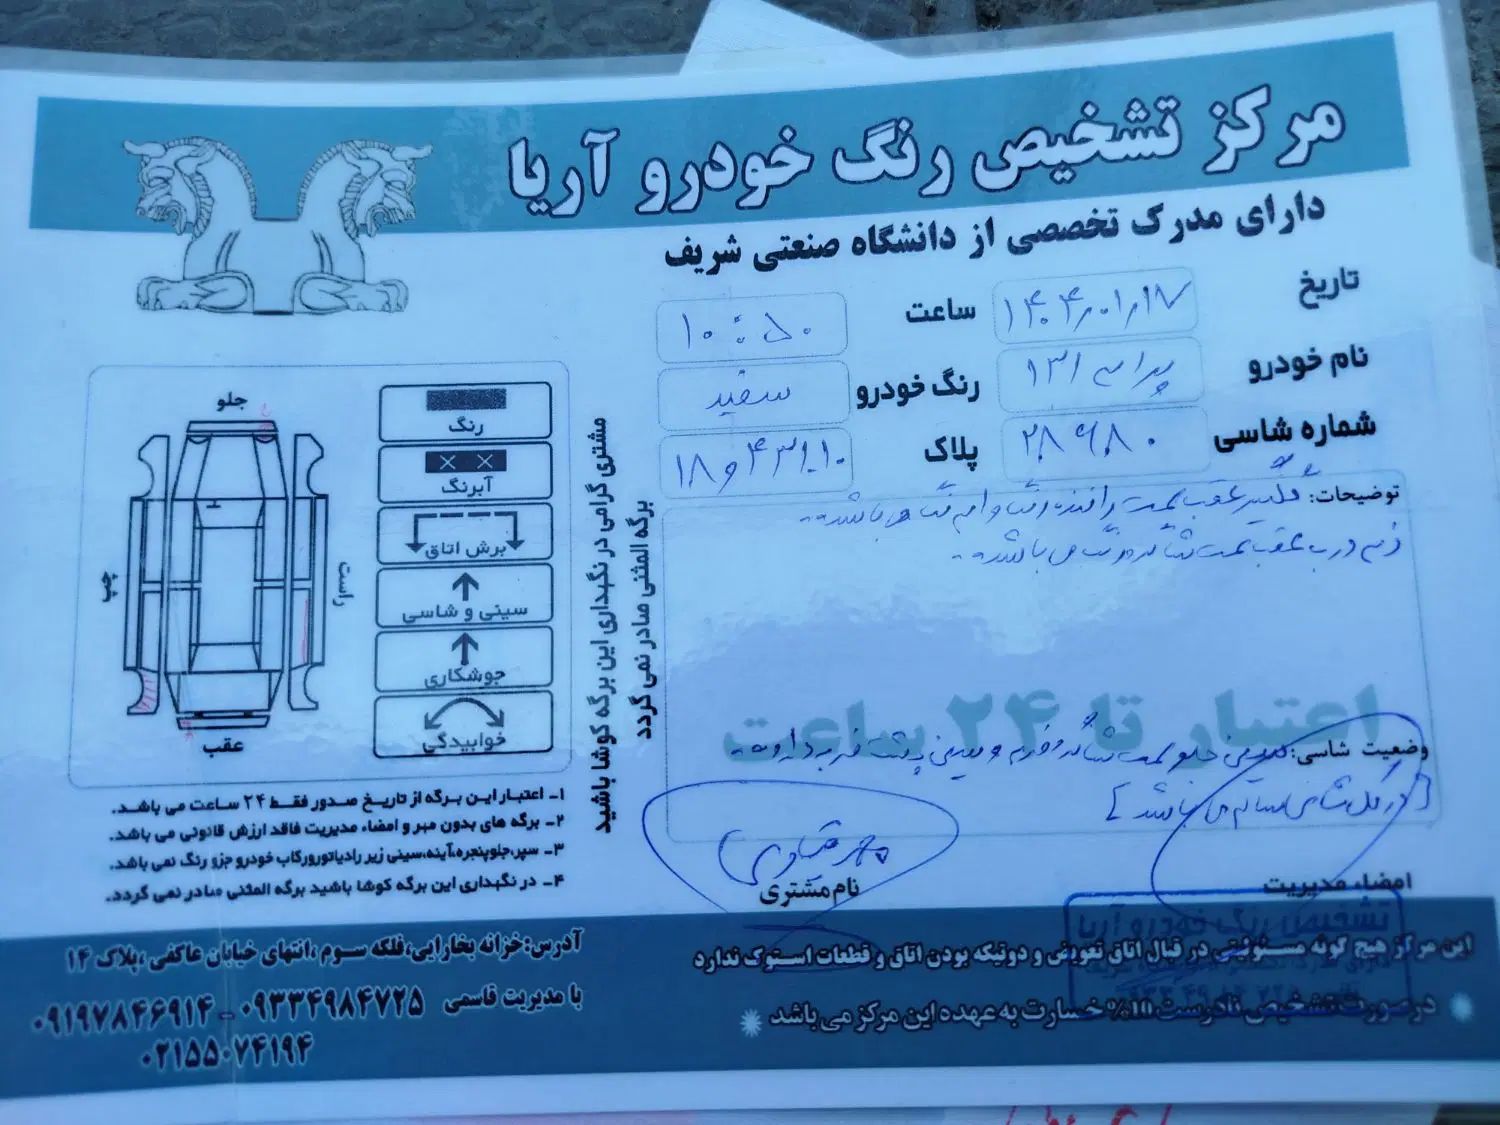 مرکز تشخیص رنگ خودرو آریا
دارای مدرک تخصصی از دانشگاه صنعتی شریف
تاریخ ۱۴۰۴/۰۱/۱۷ ساعت ۱۰:۵۰
نام خودرو پراید ۱۳۱ رنگ خودرو سفید
شماره شاسی پلاک
توضیحات: گلگیر عقب سمت راننده رنگ و می باشد
درب عقب سمت شاگرد رنگ می باشد
اعتبار تا ۲۴ ساعت
وضعیت شاسی: سینی جلو سمت شاگرد و سینی پشت ضربه دارد
[در کل شاسی سالم می باشد]
امضاء مدیریت
نام مشتری
مشتری گرامی در نگهداری این برگه کوشا باشید
برگه المثنی صادر نمی گردد
رنگ
آبرنگ
برش اتاق
سینی و شاسی
جوشکاری
خوابیدگی
جلو
راست
چپ
عقب
۱- اعتبار این برگه از تاریخ صدور فقط ۲۴ ساعت می باشد.
۲- برگه های بدون مهر و امضاء مدیریت فاقد ارزش قانونی می باشد.
۳- سپر،جلوپنجره،آینه،سینی زیر رادیاتورورکاب خودرو جزو رنگ نمی باشد.
۴- در نگهداری این برگه کوشا باشید برگه المثنی صادر نمی گردد.
تشخیص رنگ خودرو آریا
این مرکز هیچ گونه مسئولیتی در قبال اتاق تعویض و دوتیکه بودن اتاق و قطعات استوک ندارد
درصورت تشخیص نادرست 10% خسارت به عهده این مرکز می باشد
آدرس:خزانه بخارایی،فلکه سوم ،انتهای خیابان عاکفی ،پلاک ۱۴
با مدیریت قاسمی ۰۹۳۳۴۹۸۴۷۲۵ - ۰۹۱۹۷۸۴۶۹۱۴
۰۲۱۵۵۰۷۴۱۹۴